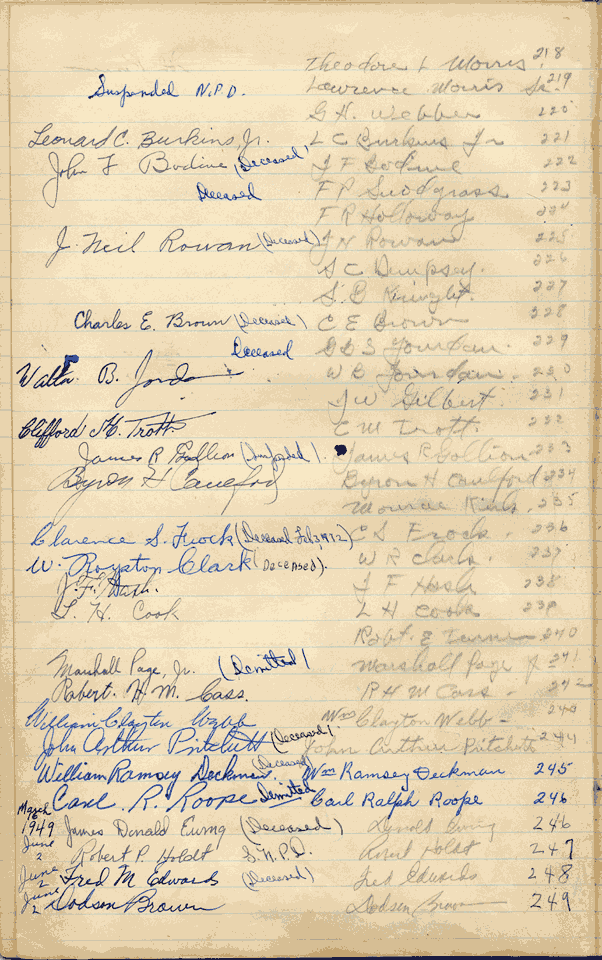 Theodore L Morris 218
Suspended N.P.D. Lawrence Morris Sr. 219
G H. Webber 220
Leonard C. Burkins, Jr. L C Burkins Jr 221
John F Bodine (Deceased) J F Bodine 222
Deceased F P Snodgrass 223
F R Holloway 224
J. Neil Rowan (Deceased) J N Rowan 225
S C Dempsey. 226
S. B Knight. 227
Charles E. Brown (Deceased) C E Brown 228
Deceased Jourdan. 229
Walter B. Jordan W B Jourdan. 230
J W Gilbert. 231
Clifford H. Trott C M Trott. 232
James R. (Suspended). James R 233
Byron H Caulford Byron H Caulford 234
235
Clarence S. Frock (Deceased Feb 3, 1972) C S Frock. 236
W. Royston Clark (Deceased). W R Clark. 237
J. F. Hash. J F Hash 238
L. H. Cook L H Cook 239
Robt. E Turner 240
Marshall Page, Jr. (Demitted) Marshall Page Jr 241
Robert. H. M. Cass. R H M Cass - 242
William Clayton Webb Wm Clayton Webb - 243
John Arthur Pritchett (Deceased). John Arthur Pritchett 244
William Ramsey Deckman. (Deceased) Wm Ramsey Deckman 245
Carl. R. Roope Demitted Carl Ralph Roope 246
March 16 1949 James Donald Ewing (Deceased) Donald Ewing 246
June 2 Robert P. Holdt S.N.P.D. Robert Holdt 247
June 2 Fred M Edwards (Deceased) Fred Edwards 248
June 2 Dodson Brown Dodson Brown 249